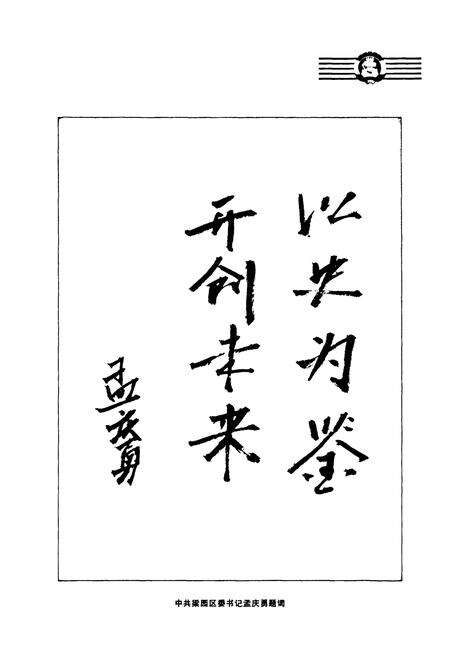 以史为鉴
开创未来
孟庆勇
中共梁园区委书记孟庆勇题词